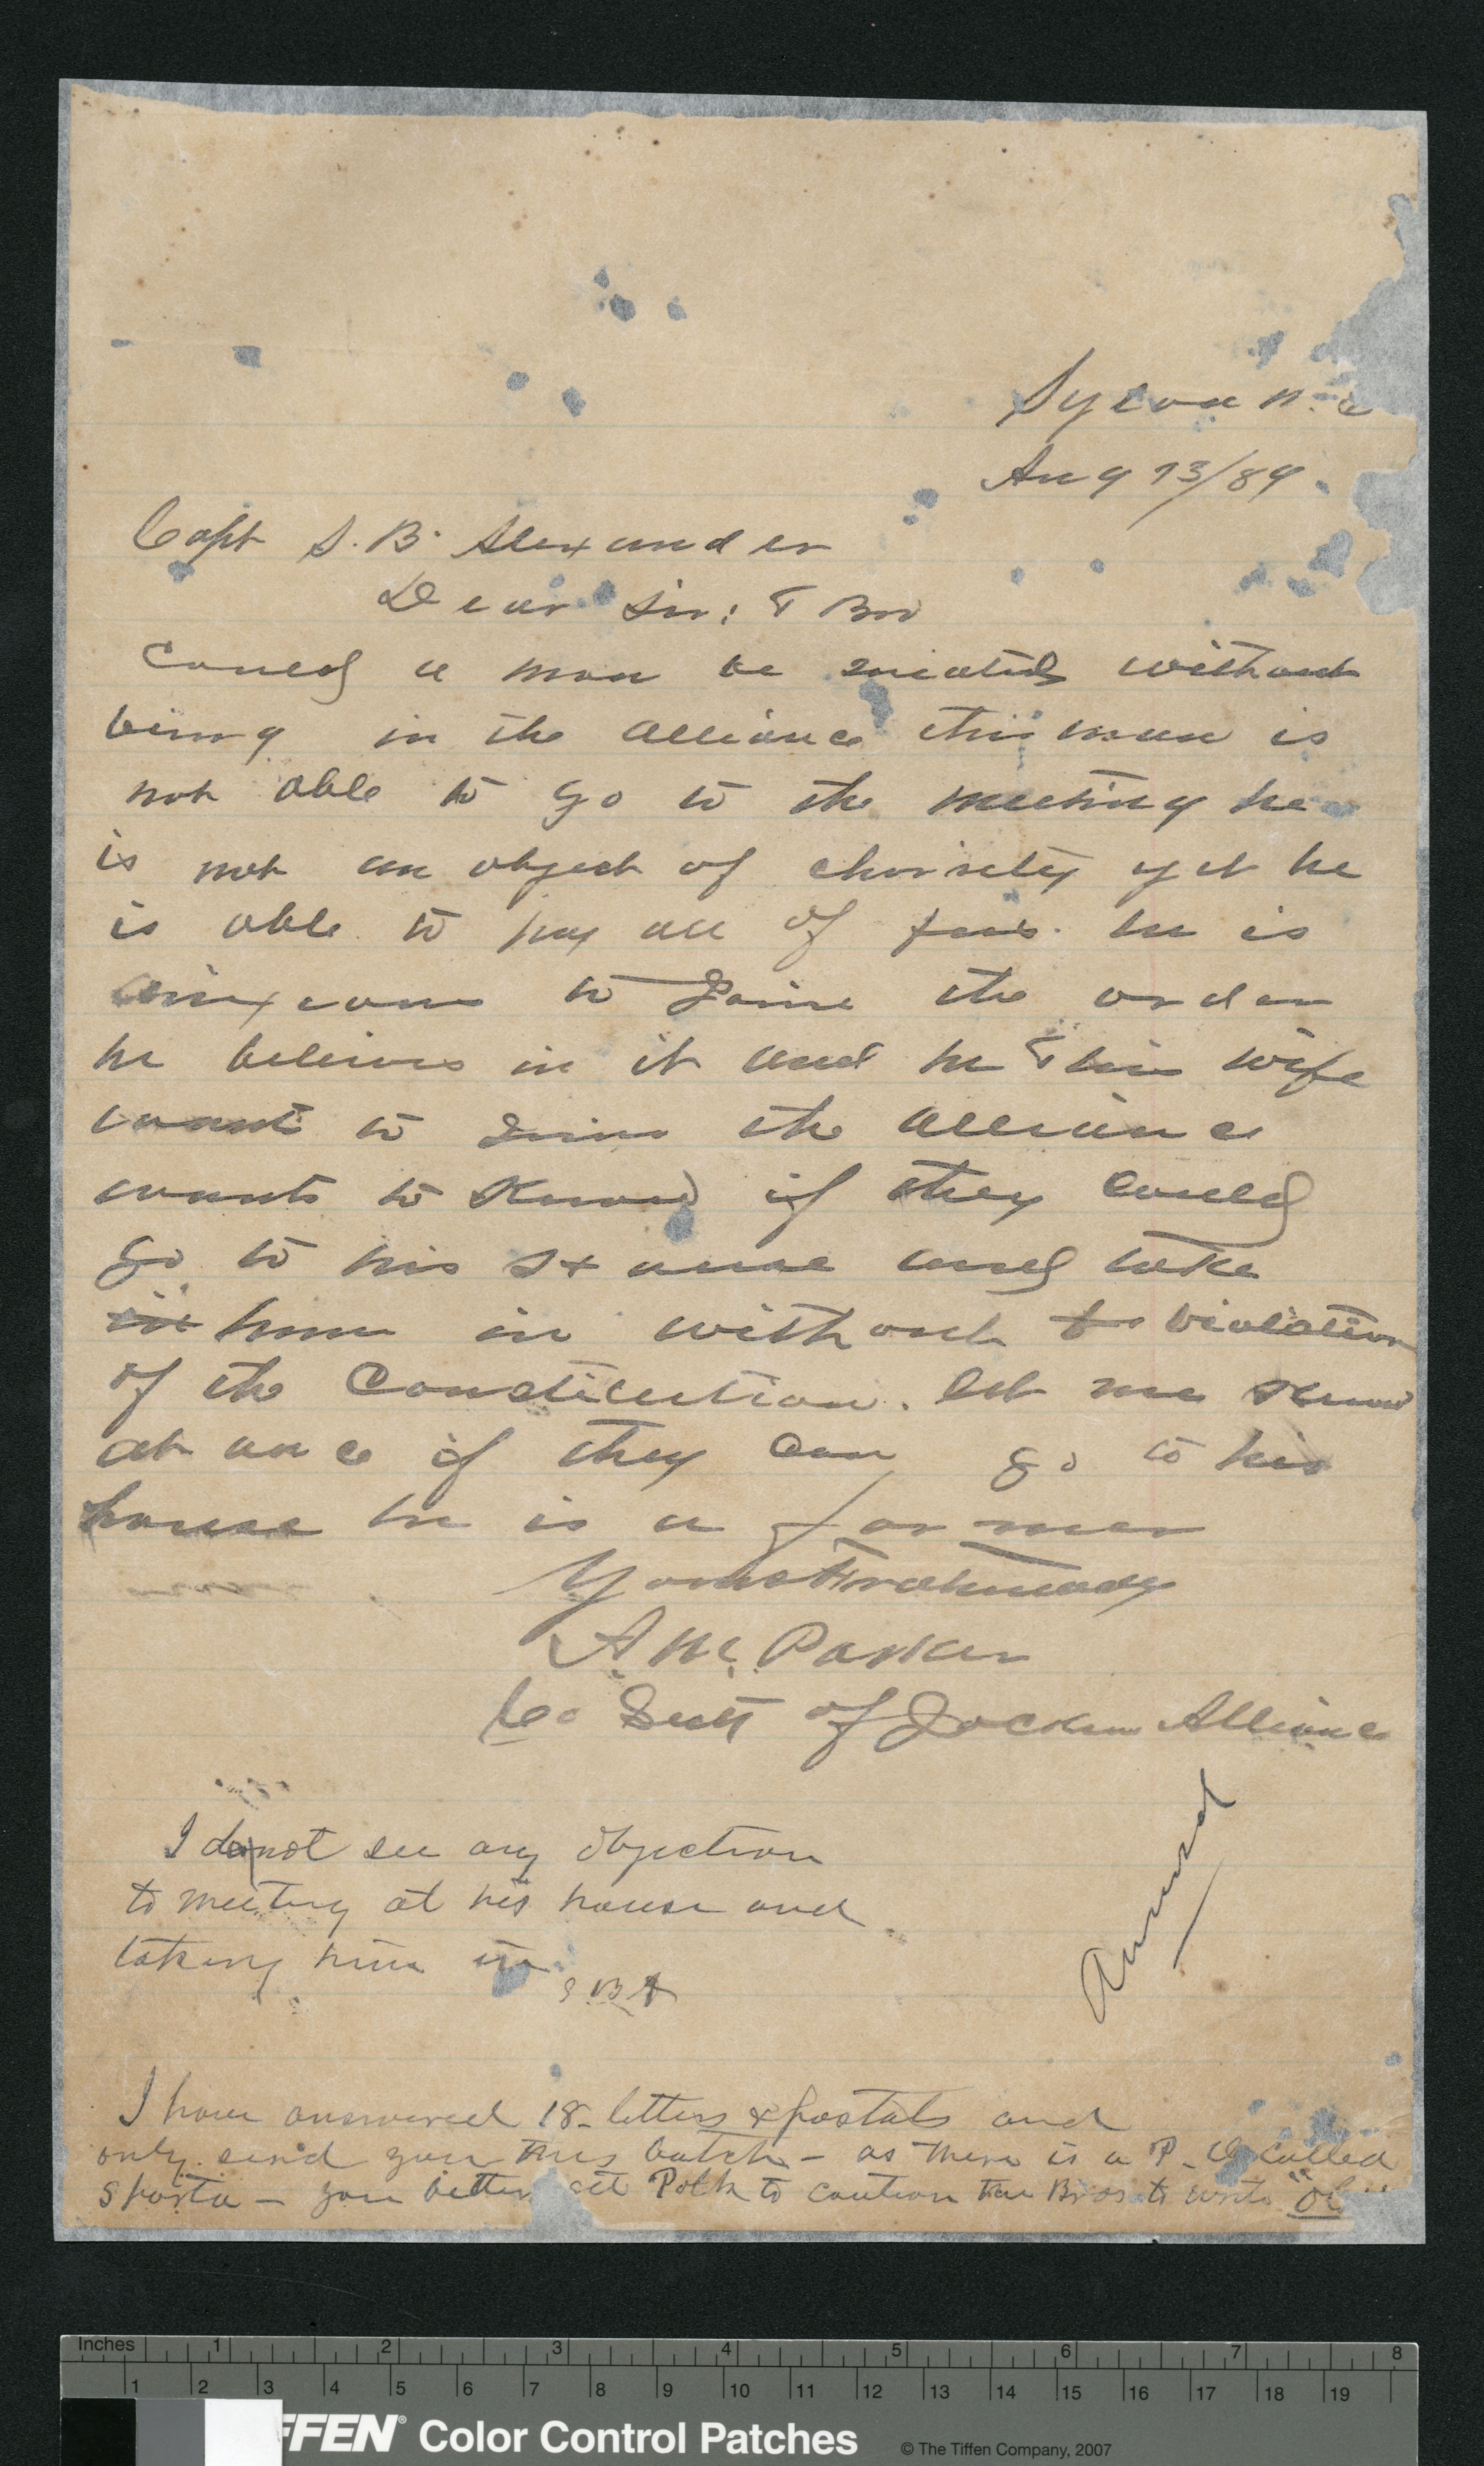 Sylva N. C
Aug 13/89.
Capt S. B. Alexander
Dear Sir: & Bro
Could a man be iniated without
being in the alliance this man is
not able to go to the meeting he
is not an object of charity yet he
is able to pay all of fees. he is
anixious to Joine the order
he believes in it and he & his wife
wants to Joine the alliance
wants to know if they could
go to his house and take
him in without violation
of the Constitution. let me know
at once if they can go to his
house he is a farmer
Yours Fraternaly
A. M. Parker
Co Sect of Jackson Alliance
I do not see any objection
to meeting at his house and
taking him in
S B A
Answrd
I have answered 18- letters & postals and
only send you this batch - as there is a P. O called
Sparta - you better get Polk to caution the Bros to write
Inches 1 2 3 4 5 6 7 8
1 2 3 4 5 6 7 8 9 10 11 12 13 14 15 16 17 18 19
FFEN® Color Control Patches © The Tiffen Company, 2007